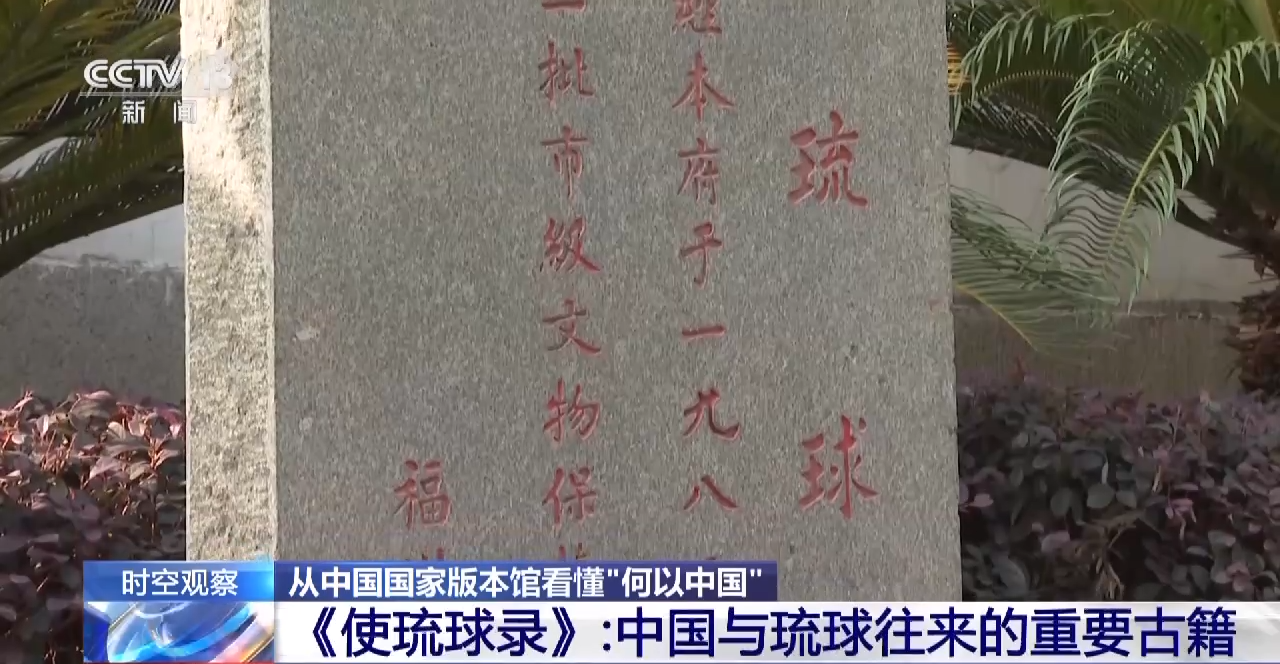 CCTV 13
新闻
琉球
本府于一九八
一批市級文物保
福
时空观察
从中国国家版本馆看懂"何以中国"
《使琉球录》:中国与琉球往来的重要古籍